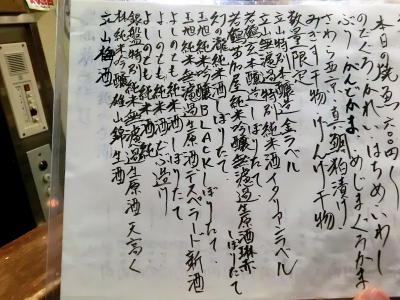 本日の焼魚六〇〇円〜
のどぐろ かれい はちめ いわし
ぶり がんど かま めじまぐろかま
さわら西京 真鯛粕漬け
みぎす干物 げんげ干物
数量限定
立山特別本醸造金ラベル
立山無濾過特別純米酒イタリヤンラベル
若鶴玄本醸造しぼりたて
若鶴苗加屋純米吟醸無濾過生原酒琳赤
しぼりたて
幻の瀧純米酒しぼりたて
玉旭純米吟醸BLACKしぼりたて
玉旭純米無濾過生原酒デスペラード新酒
よしのとも純米酒しぼりたて
よしのとも純米酒
銀盤特別純米無濾過生原酒天高く
林純米吟醸雄山錦生酒
立山梅酒